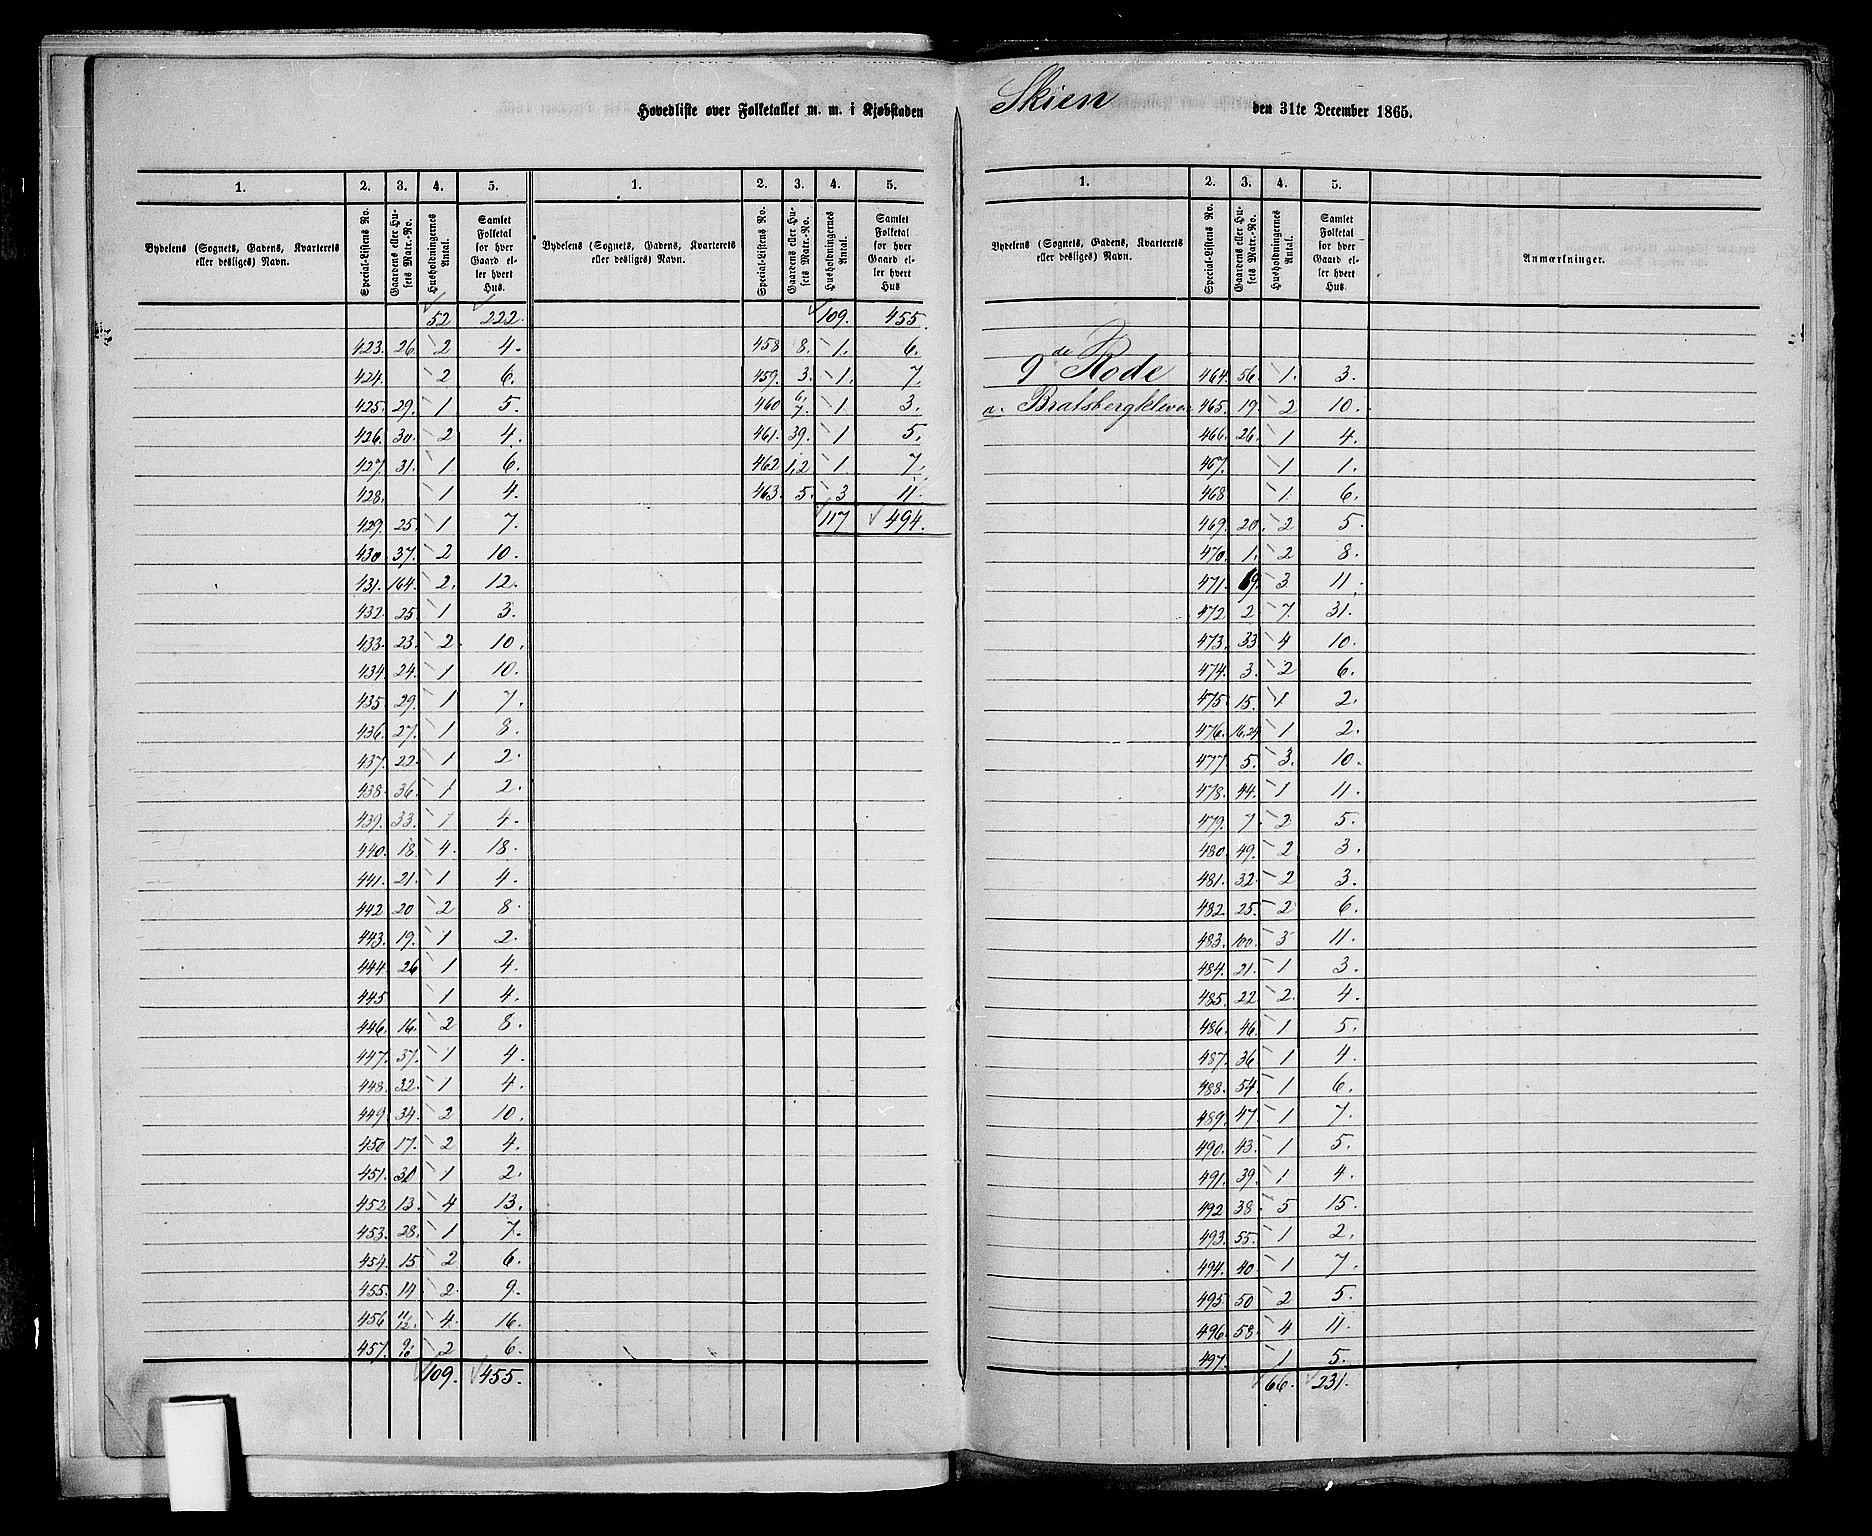 Hovedliste over Folketallet m. m. i Kjøbstaden Skien den 31te December 1865.
1. 2. 3. 4. 5. 1. 2. 3. 4. 5.
Bydelens (Sognets, Gadens, Kvarterets eller desliges) Navn. Special-Listens No. Gaardens eller Husets Matr.-No. Husholdningernes Antal. Samlet Folketal for hver Gaard eller hvert Hus. Bydelens (Sognets, Gadens, Kvarterets eller desliges) Navn. Special-Listens No. Gaardens eller Husets Matr.-No. Husholdningernes Antal. Samlet Folketal for hver Gaard eller hvert Hus
52 222. 109. 455.
423. 26. 2 4. 458 8. 1. 6.
424. 2 6. 459. 3. 1. 7.
425. 29. 1 5. 460 6/7. 1 3.
426. 30. 2 4. 461. 39. 1 5.
427. 31. 1 6. 462 1,2 1. 7.
428. 1 4. 463. 5. 3 11.
429. 25. 1 7. 117 494.
430. 37. 2 10.
431. 164. 2. 12.
432. 25. 1 3.
433. 23. 2. 10.
434. 24. 1 10.
435. 29. 1 7.
436. 27. 1 8.
437. 22. 1 2.
438. 36. 1 2.
439. 33. 1 4.
440. 18. 4. 18.
441. 21. 1 4.
442 20 2 8.
443. 19. 1 2.
444. 26 1 4.
445 1 4.
446. 16. 2 8.
447. 37. 1 4.
448. 32. 1 4.
449. 34. 2 10.
450 17. 2 4.
451. 1 2.
452 13. 4 13.
453. 28. 1 7.
454. 15 2 6.
455. 14 2. 9.
456 11/12. 4. 16.
457. 2 6.
109. 455.
1. 2. 3. 4. 5.
Bydelens (Sognets, Gadens, Kvarterets eller desliges) Navn. Special-Listens No. Gaardens eller Husets Matr.-No. Husholdningernes Antal. Samlet Folketal for hver Gaard eller hvert Hus. Anmærkninger.
9de Rode 464. 56. 1. 3.
a. Bratsbergkleven 465. 19. 2 10.
466. 26. 1 4.
467. 1 1.
468 1. 6.
469. 20. 2 5.
470. 1. 2 8.
471. 69. 3 11.
472 2. 7. 31.
473. 33 4 10.
474. 3. 2 6.
475. 15. 1. 2.
476. 16.24 1 2.
477. 5. 3. 10.
478. 44. 1 11.
479. 7. 2 5.
480. 49. 2. 3.
481. 32. 2 3.
482. 25. 2 6.
483. 100. 3 11.
484. 21. 1 3.
485. 22. 2. 4.
486. 46. 1 5.
487. 36. 1 4.
488. 54. 1 6.
489. 47 1 7.
490. 43. 1 5.
491. 39. 1 4.
492 38. 5 15.
493. 55. 1 2.
494. 40. 1 7.
495. 50 2 5.
496. 58. 4 11.
497. 1 5.
66. 231.